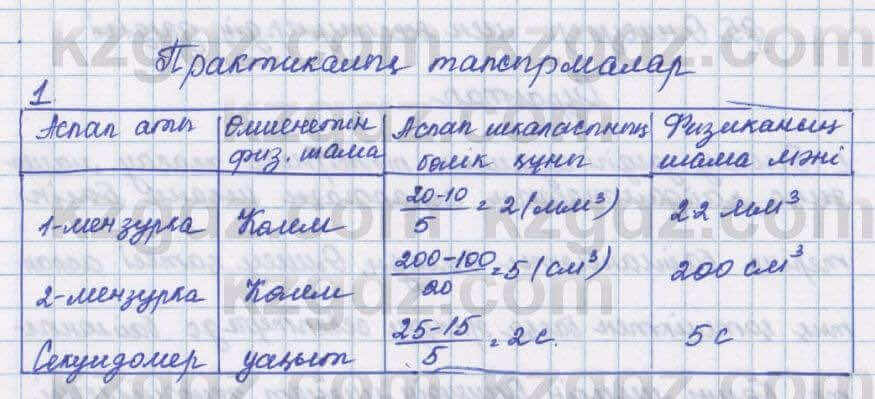 Практикалық тапсырмалар
1
Аспап аты Өлшенетін физ. шама Аспап шкаласының бөлік құны Физиканың шама мәні
1-мензурка Көлем 20-10/5 = 2 (мм³) 22 мм³
2-мензурка Көлем 200-100/20 = 5 (см³) 200 см³
Секундомер уақыт 25-15/5 = 2 с. 5 с
kzgdz.com